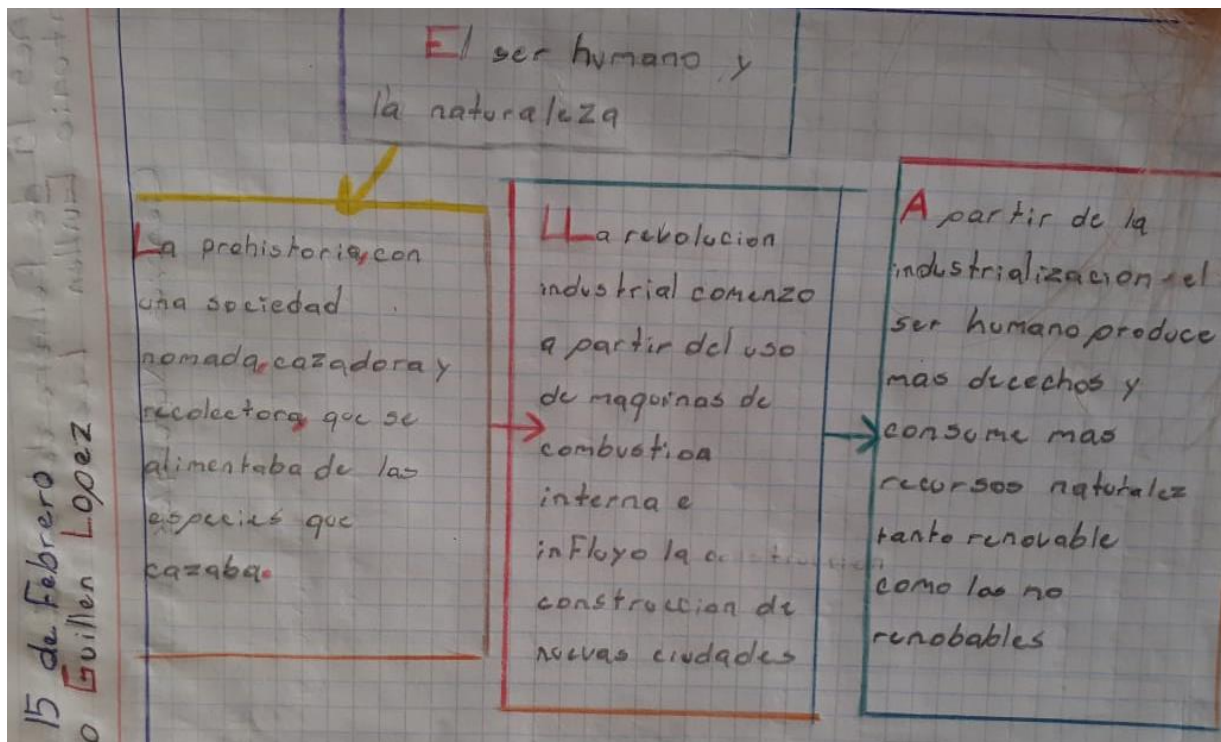 El ser humano y
la naturaleza
La prehistoria, con
una sociedad
nomada, cazadora y
recolectora, que se
alimentaba de las
especies que
cazaba.
LLa revolucion
industrial comenzo
a partir del uso
de maquinas de
combustion
interna e
inFluyo la
construccion de
nuevas ciudades
A partir de la
industrializacion el
ser humano produce
mas decechos y
consume mas
recursos naturalez
tanto renovable
como las no
renobables
15 de Febrero
Guillen Lopez